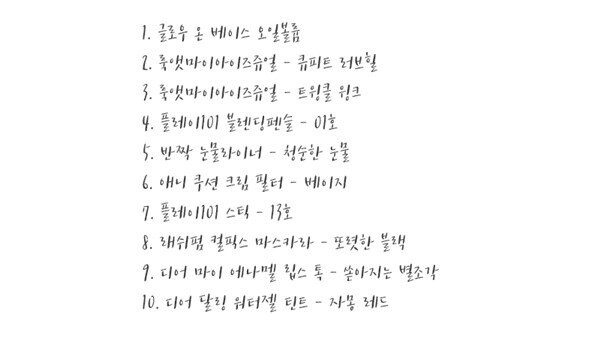 1. 글로우 온 베이스 오일볼륨
2. 룩앳마이아이즈쥬얼 - 큐피트 러브힐
3. 룩앳마이아이즈쥬얼 - 트윙클 윙크
4. 플레이101 블렌딩펜슬 - 01호
5. 반짝 눈물라이너 - 청순한 눈물
6. 애니 쿠션 크림 필터 - 베이지
7. 플레이101 스틱 - 13호
8. 래쉬펌 컬픽스 마스카라 - 또렷한 블랙
9. 디어 마이 에나멜 립스 톡 - 쏟아지는 별조각
10. 디어 달링 워터젤 틴트 - 자몽 레드